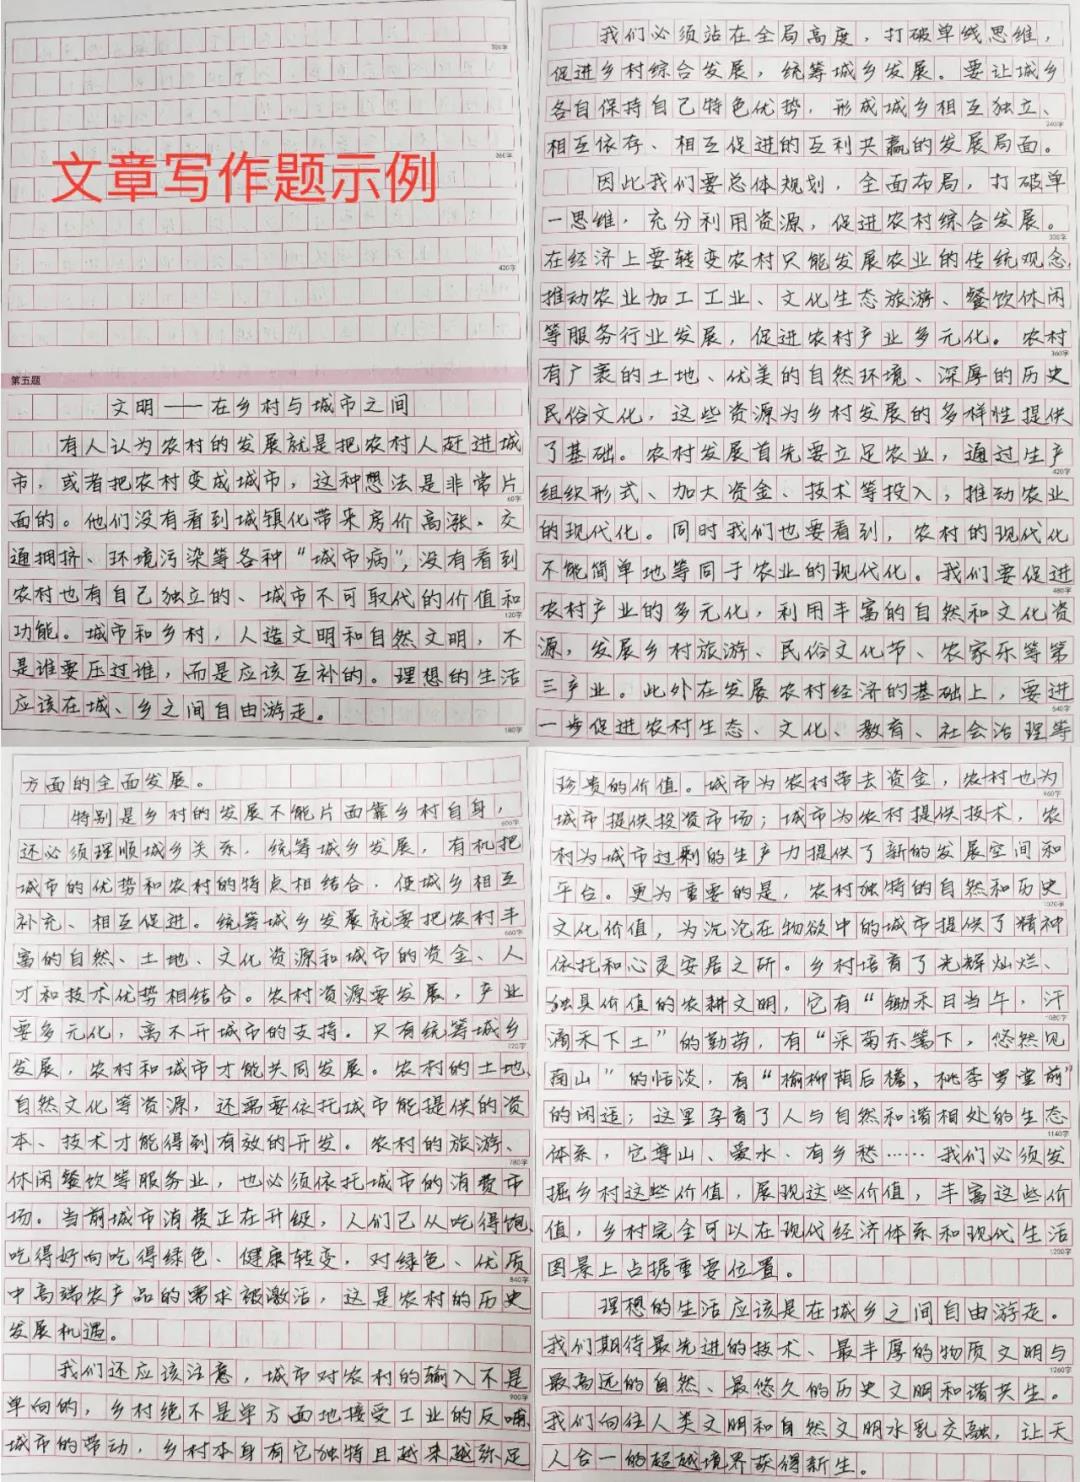 300字
360字
文章写作题示例
420字
第五题
文明——在乡村与城市之间
有人认为农村的发展就是把农村人赶进城
市，或者把农村变成城市，这种想法是非常片
60字
面的。他们没有看到城镇化带来房价高涨、交
通拥挤、环境污染等各种“城市病”，没有看到
农村也有自己独立的、城市不可取代的价值和
120字
功能。城市和乡村，人造文明和自然文明，不
是谁要压过谁，而是应该互补的。理想的生活
应该在城、乡之间自由游走。
180字
我们必须站在全局高度，打破单线思维，
促进乡村综合发展，统筹城乡发展。要让城乡
各自保持自己特色优势，形成城乡相互独立、
240字
相互依存、相互促进的互利共赢的发展局面。
因此我们要总体规划，全面布局，打破单
一思维，充分利用资源，促进农村综合发展。
300字
在经济上要转变农村只能发展农业的传统观念，
推动农业加工工业、文化生态旅游、餐饮休闲
等服务行业发展，促进农村产业多元化。农村
360字
有广袤的土地、优美的自然环境、深厚的历史
民俗文化，这些资源为乡村发展的多样性提供
了基础。农村发展首先要立足农业，通过生产
420字
组织形式、加大资金、技术等投入，推动农业
的现代化。同时我们也要看到，农村的现代化
不能简单地等同于农业的现代化。我们要促进
480字
农村产业的多元化，利用丰富的自然和文化资
源，发展乡村旅游、民俗文化节、农家乐等第
三产业。此外在发展农村经济的基础上，要进
540字
一步促进农村生态、文化、教育、社会治理等
方面的全面发展。
特别是乡村的发展不能片面靠乡村自身，
600字
还必须理顺城乡关系，统筹城乡发展，有机把
城市的优势和农村的特点相结合，使城乡相互
补充、相互促进。统筹城乡发展就要把农村丰
660字
富的自然、土地、文化资源和城市的资金、人
才和技术优势相结合。农村资源要发展，产业
要多元化，离不开城市的支持。只有统筹城乡
720字
发展，农村和城市才能共同发展。农村的土地、
自然文化等资源，还需要依托城市能提供的资
本、技术才能得到有效的开发。农村的旅游、
780字
休闲餐饮等服务业，也必须依托城市的消费市
场。当前城市消费正在升级，人们已从吃得饱、
吃得好向吃得绿色、健康转变，对绿色、优质
840字
中高端农产品的需求被激活，这是农村的历史
发展机遇。
我们还应该注意，城市对农村的输入不是
900字
单向的，乡村绝不是单方面地接受工业的反哺，
城市的带动，乡村本身有它独特且越来越弥足
珍贵的价值。城市为农村带去资金，农村也为
960字
城市提供投资市场；城市为农村提供技术，农
村为城市过剩的生产力提供了新的发展空间和
平台。更为重要的是，农村独特的自然和历史
1020字
文化价值，为沉沦在物欲中的城市提供了精神
依托和心灵安居之所。乡村培育了光辉灿烂、
独具价值的农耕文明，它有“锄禾日当午，汗
1080字
滴禾下土”的勤劳，有“采菊东篱下，悠然见
南山”的恬淡，有“榆柳荫后檐，桃李罗堂前”
的闲适；这里孕育了人与自然和谐相处的生态
1140字
体系，它尊山、爱水、有乡愁……我们必须发
掘乡村这些价值，展现这些价值，丰富这些价
值，乡村完全可以在现代经济体系和现代生活
1200字
图景上占据重要位置。
理想的生活应该是在城乡之间自由游走。
我们期待最先进的技术、最丰厚的物质文明与
1260字
最高远的自然、最悠久的历史文明和谐共生。
我们向往人类文明和自然文明水乳交融，让天
人合一的超越境界获得新生。